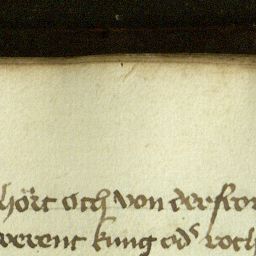 hört och von der
werent kung od' roch